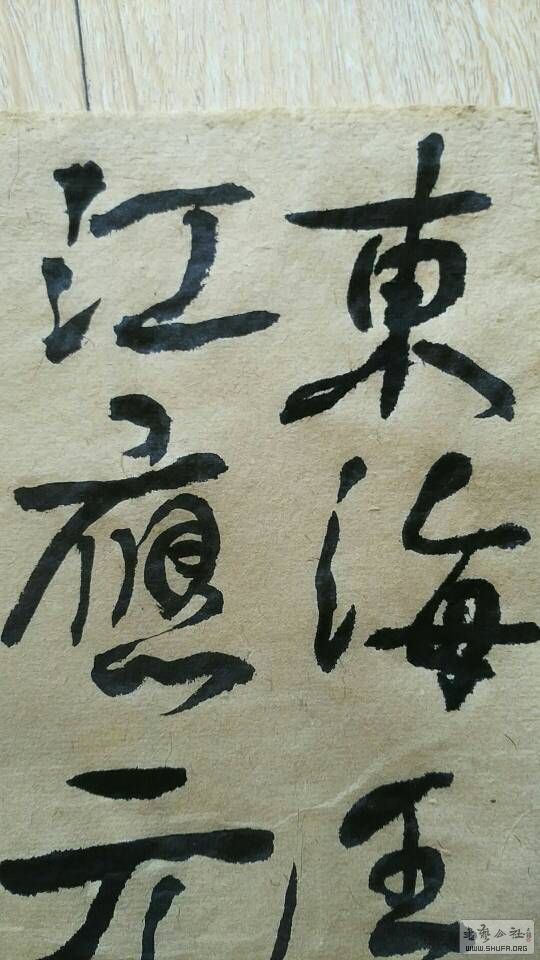 東海王
江應元
书艺公社
WWW.SHUFA.ORG